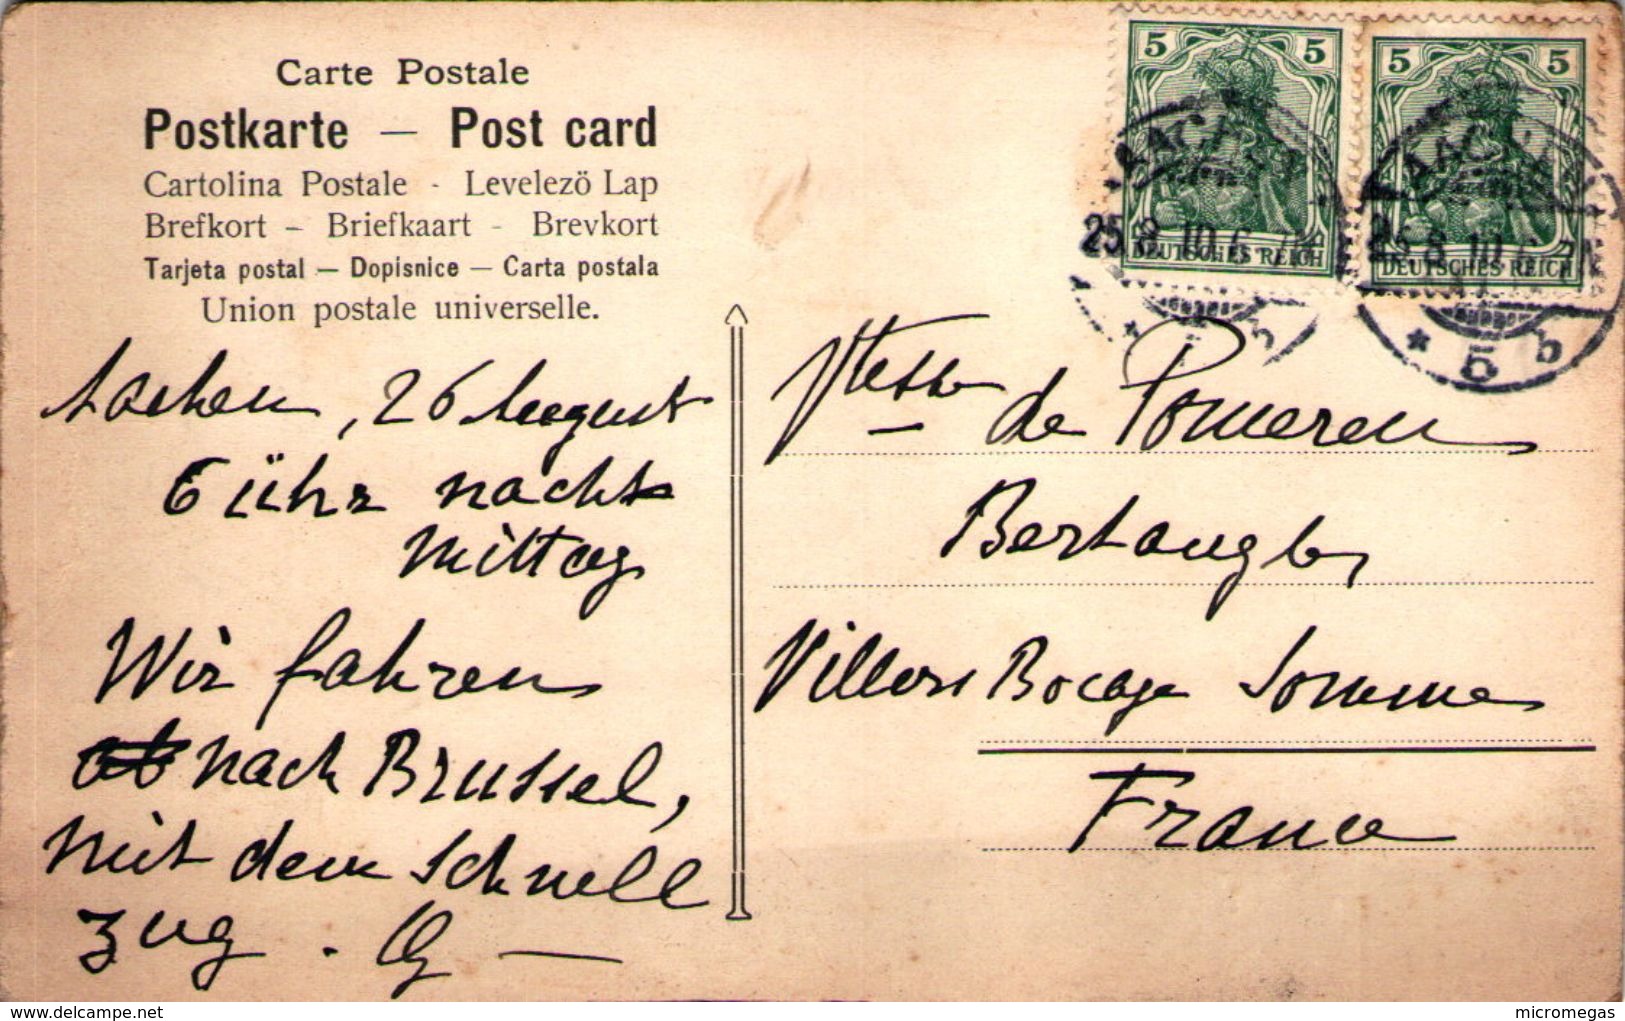 Carte Postale
Postkarte — Post card
Cartolina Postale - Levelezö Lap
Brefkort – Briefkaart - Brevkort
Tarjeta postal — Dopisnice — Carta postala
Union postale universelle.
5 5
DEUTSCHES REICH
5 5
DEUTSCHES REICH
AACHEN
25.8.10.6-7N
* 5 b
AACHEN
25.8.10.6-7N
* 5 b
Aachen, 26 August
6 ühr nacht
mittag
Wir fahren
ab nach Brussel,
mit dem Schnell
zug . G —
Vtesse de Pomereu
Bertangles
Villers Bocage Somme
France
delcampe.net
micromegas